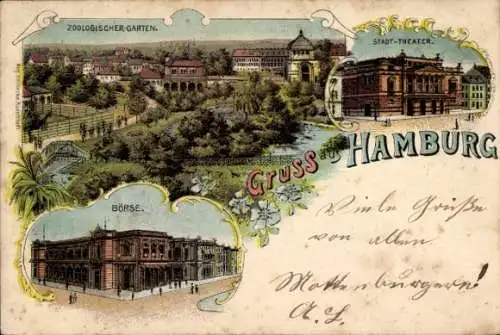 ZOOLOGISCHER-GARTEN.
STADT-THEATER.
Gruss aus HAMBURG
BÖRSE.
Viele Grüße
von allen
Mottenburgern!
A. L.